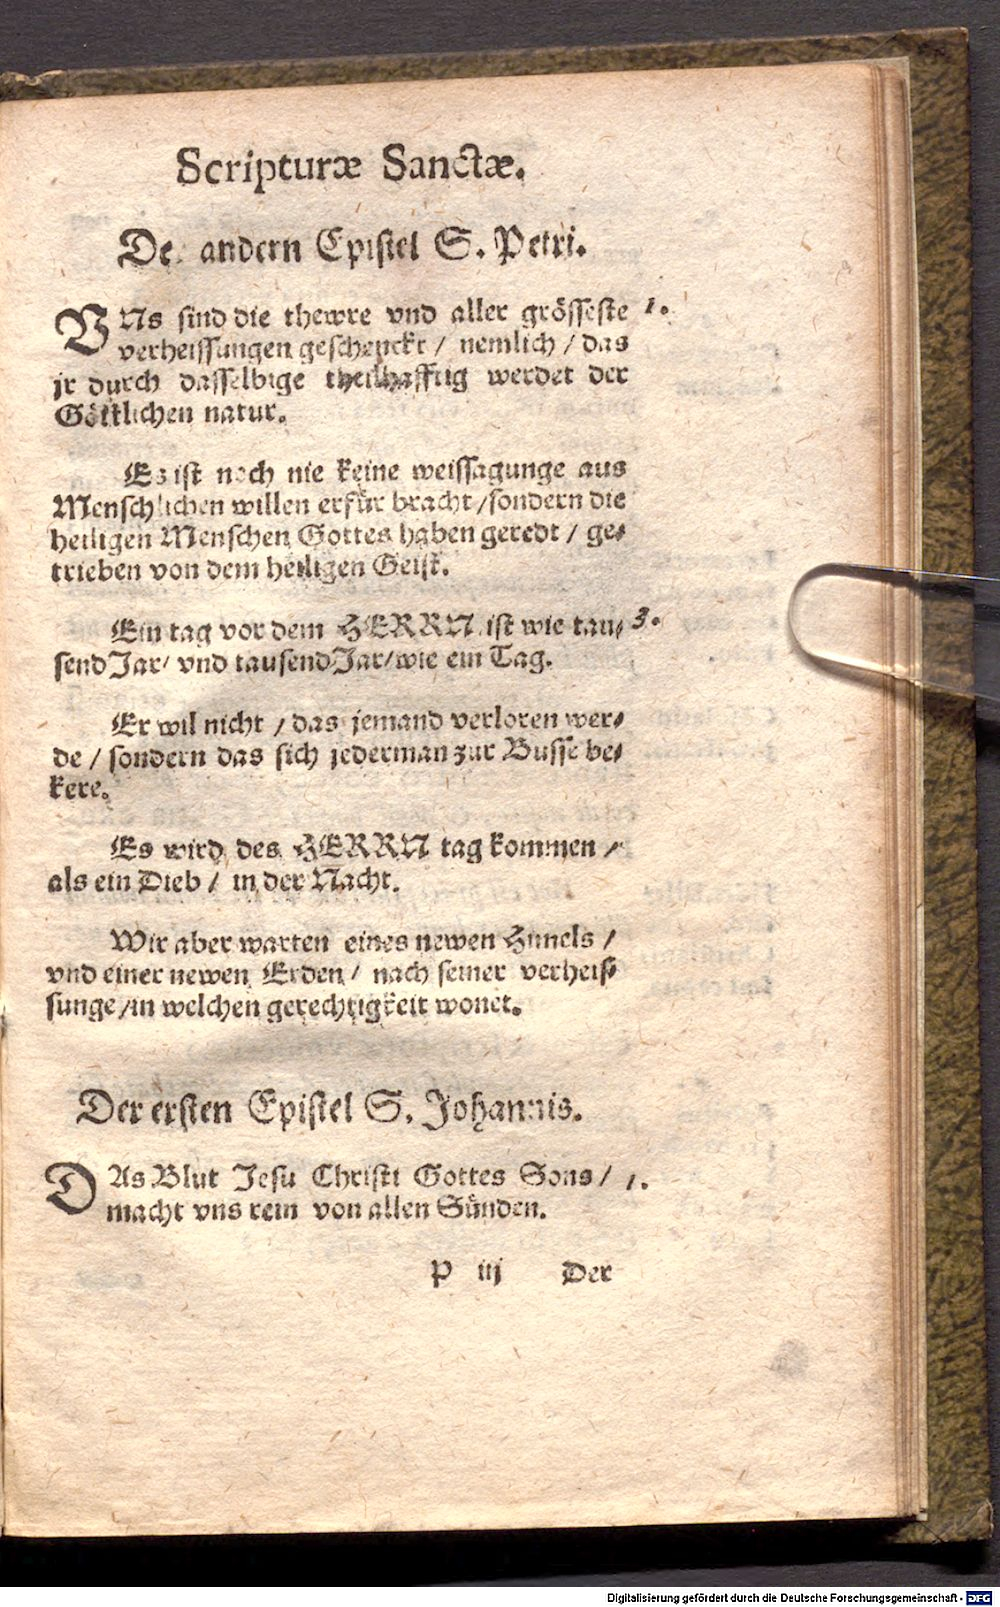 Scripturæ Sanctæ.
Der andern Epistel S. Petri.
VNs sind die thewre vnd aller grösseste 1.
verheissungen geschenckt / nemlich / das
jr durch dasselbige theilhafftig werdet der
Göttlichen natur.
Es ist noch nie keine weissagunge aus
Menschlichen willen erfür bracht / sondern die
heiligen Menschen Gottes haben geredt / ge-
trieben von dem heiligen Geist.
Ein tag vor dem HERRN ist wie tau- 3.
send Jar / vnd tausend Jar / wie ein Tag.
Er wil nicht / das jemand verloren wer-
de / sondern das sich jederman zur Busse be-
kere.
Es wird des HERRN tag kommen /
als ein Dieb / in der Nacht.
Wir aber warten eines newen Himels /
vnd einer newen Erden / nach seiner verheis-
sunge / in welchen gerechtigkeit wonet.
Der ersten Epistel S. Johannis.
DAs Blut Jesu Christi Gottes Sons / 1.
macht vns rein von allen Sünden.
P iij Der
Digitalisierung gefördert durch die Deutsche Forschungsgemeinschaft - DFG